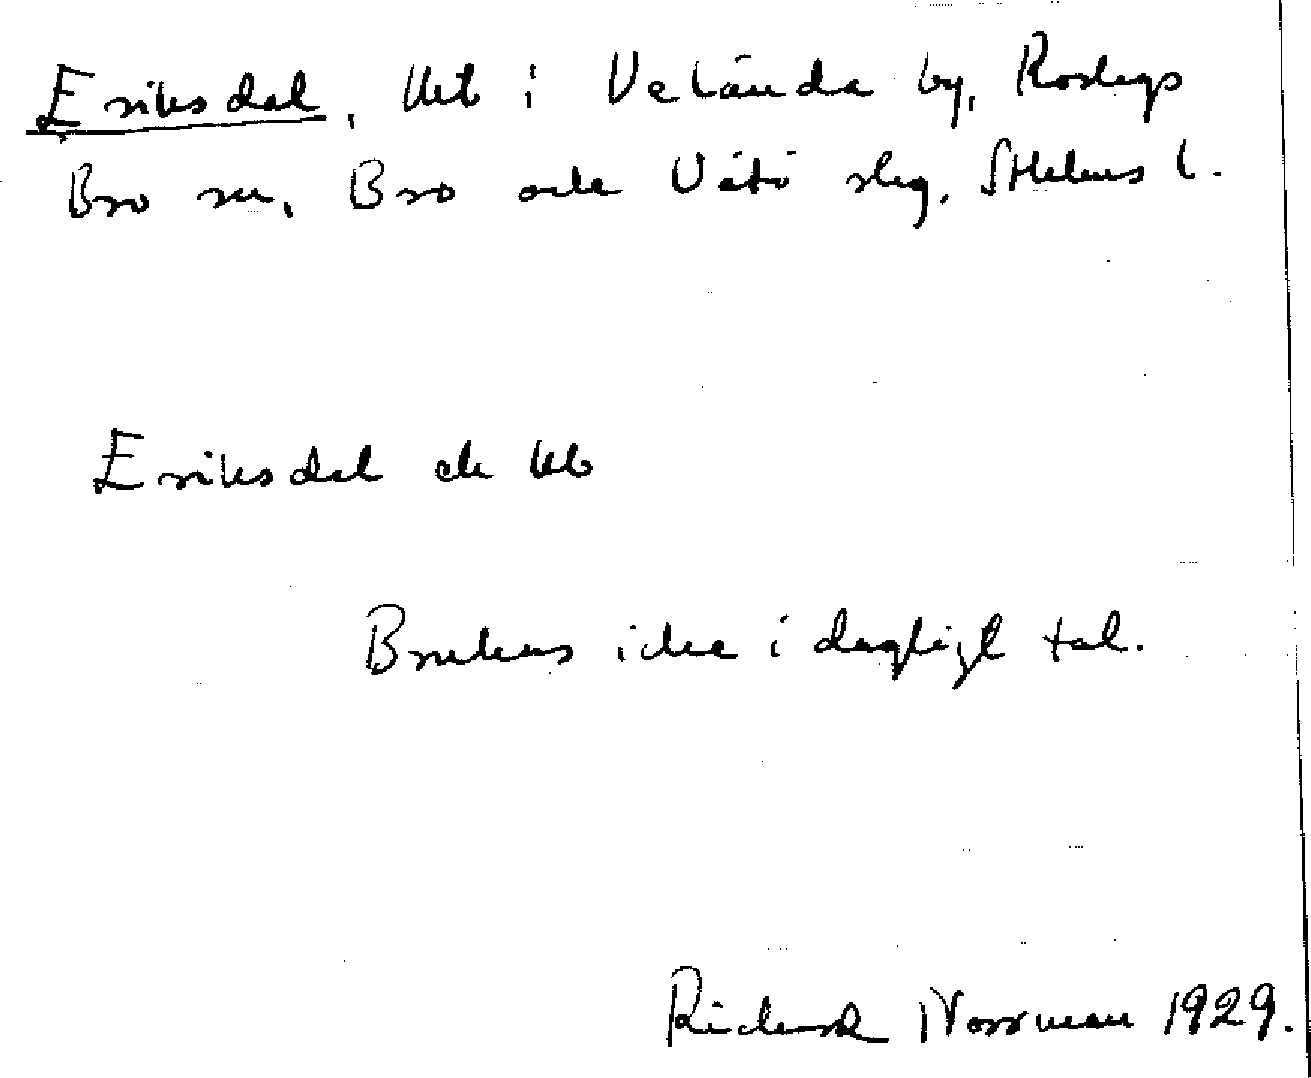 Eriksdal, lht i Vetånda by, Roslags
Bro sn, Bro och Vätö slg, Sthlms l.
Eriksdal
Brukas icke i dagligt tal.
Rickard Norrman 1929.